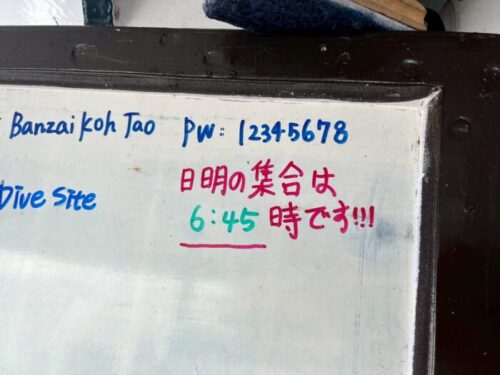 Banzai Koh Tao PW: 12345678
日明の集合は
Dive Site
6:45 時です!!!